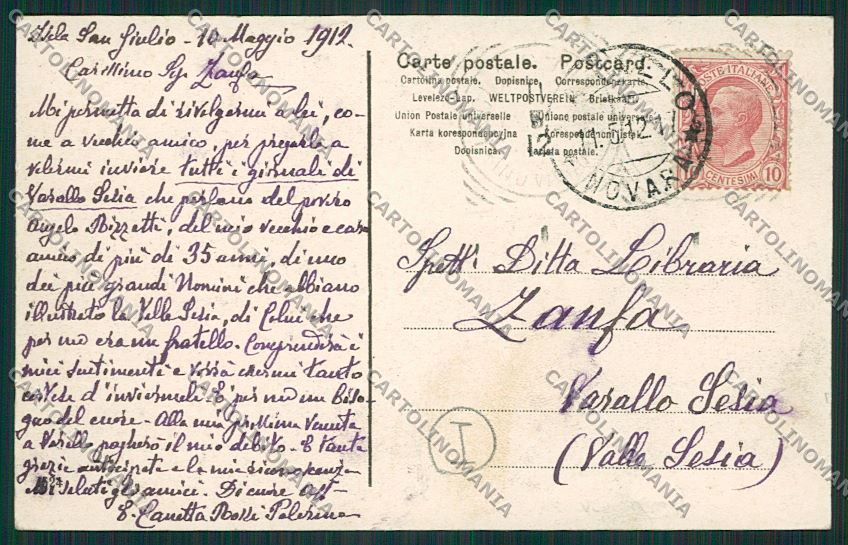 Isola San Giulio - 10 Maggio 1912.
Carissimo Sig. Zanfa
Mi permetta di rivolgermi a lei, co-
me a vecchio amico, per pregarla a
volermi inviare tutti i giornali di
Varallo Sesia che parlano del povero
Angelo Rizzetti, del mio vecchio e caro
amico di più di 35 anni, di uno
dei più grandi Uomini che abbiano
illustrato la Valle Sesia, di Colui che
per me era un fratello. Comprenderà i
miei sentimenti e vorrà essermi tanto
cortese d'inviarmeli. È per me un biso-
gno del cuore - Alla mia prossima venuta
a Varallo pagherò il mio debito. E tante
grazie anticipate e la mia riconoscenza
Mi saluti gli amici. Di cuore aff-
E. Canetta Rossi Palermo
Carte postale. Postcard.
Cartolina postale. Dopisnice. Correspondenzkarte
Levelezö-Lap. WELTPOSTVEREIN Briefkaart
Union Postale universelle Unione postale universale
Karta korespondencyjna Korespondenční lístek
Dopisnica. Tarjeta postal.
11.5.12
NOVARA
POSTE ITALIANE
CENTESIMI 10
Spett. Ditta Libraria
Zanfa
Varallo Sesia
(Valle Sesia)
I
CARTOLINOMANIA